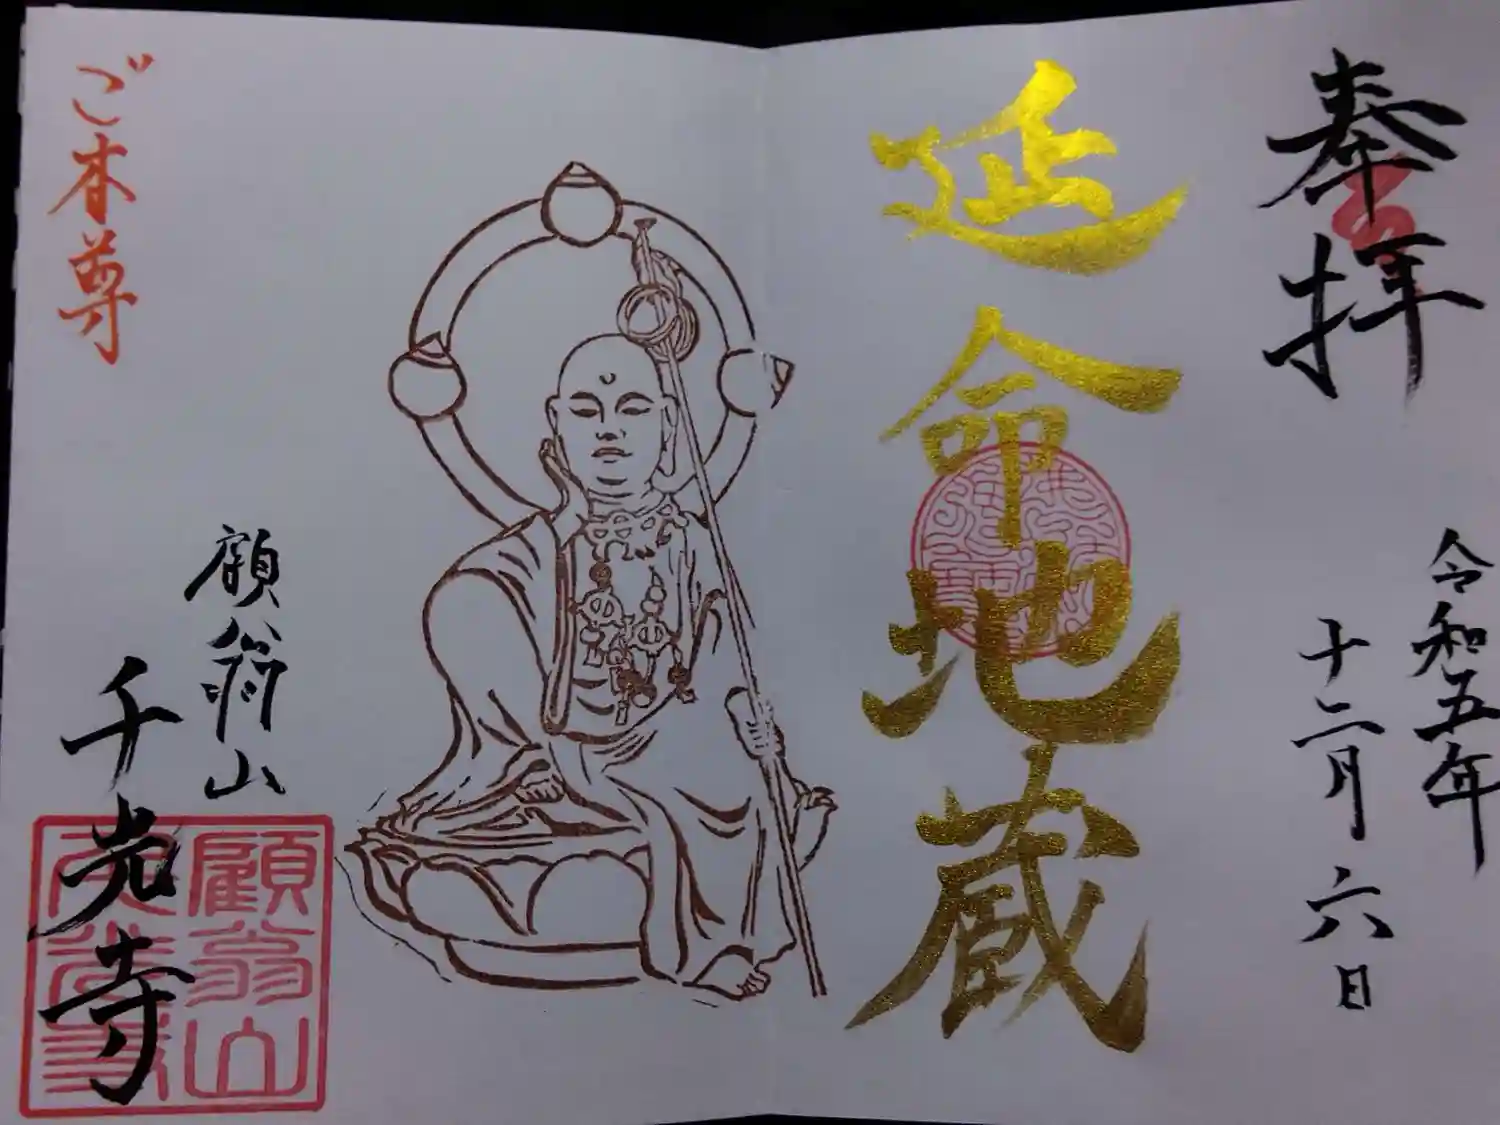 奉拝
令和五年
十二月六日
延命地蔵
ご本尊
顧翁山
千光寺
顧翁山